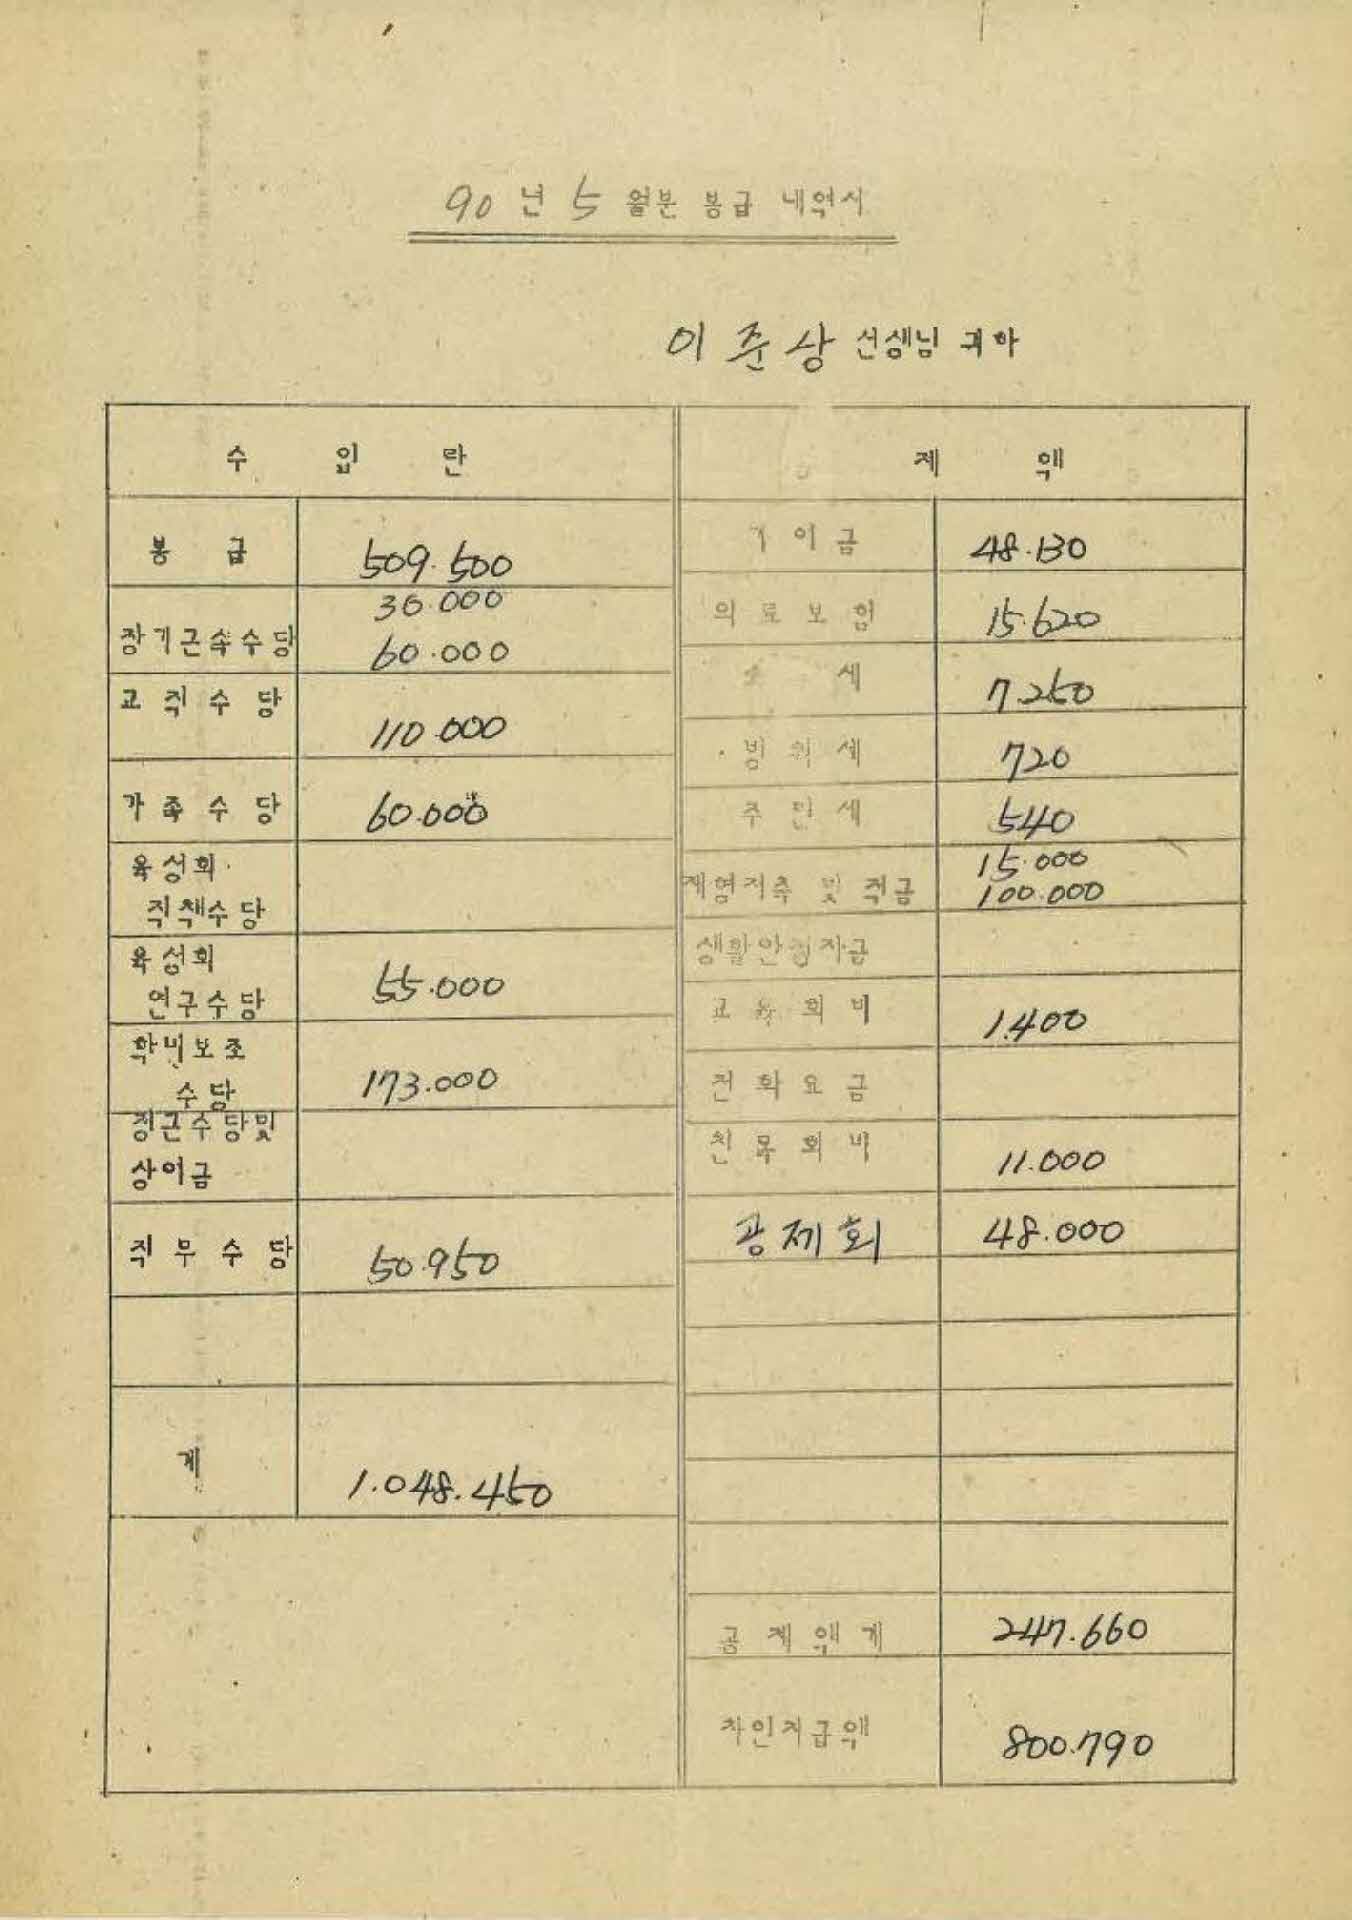 90 년 5 월분 봉급 내역서
이준상 선생님 귀하
수 입 란
제 액
봉 급 509.500
기여금 48.130
30.000
장기근속수당 60.000
의료보험 15.620
교직수당 110.000
세 7.250
가족수당 60.000
방위세 720
주민세 540
육성회
직책수당
15.000
재형저축 및 적금 100.000
육성회
연구수당 55.000
생활안정자금
교육회비 1.400
학비보조
수당 173.000
전화요금
정근수당및
상여금
친목회비 11.000
직무수당 50.950
공제회 48.000
계 1.048.450
공제액계 247.660
차인지급액 800.790